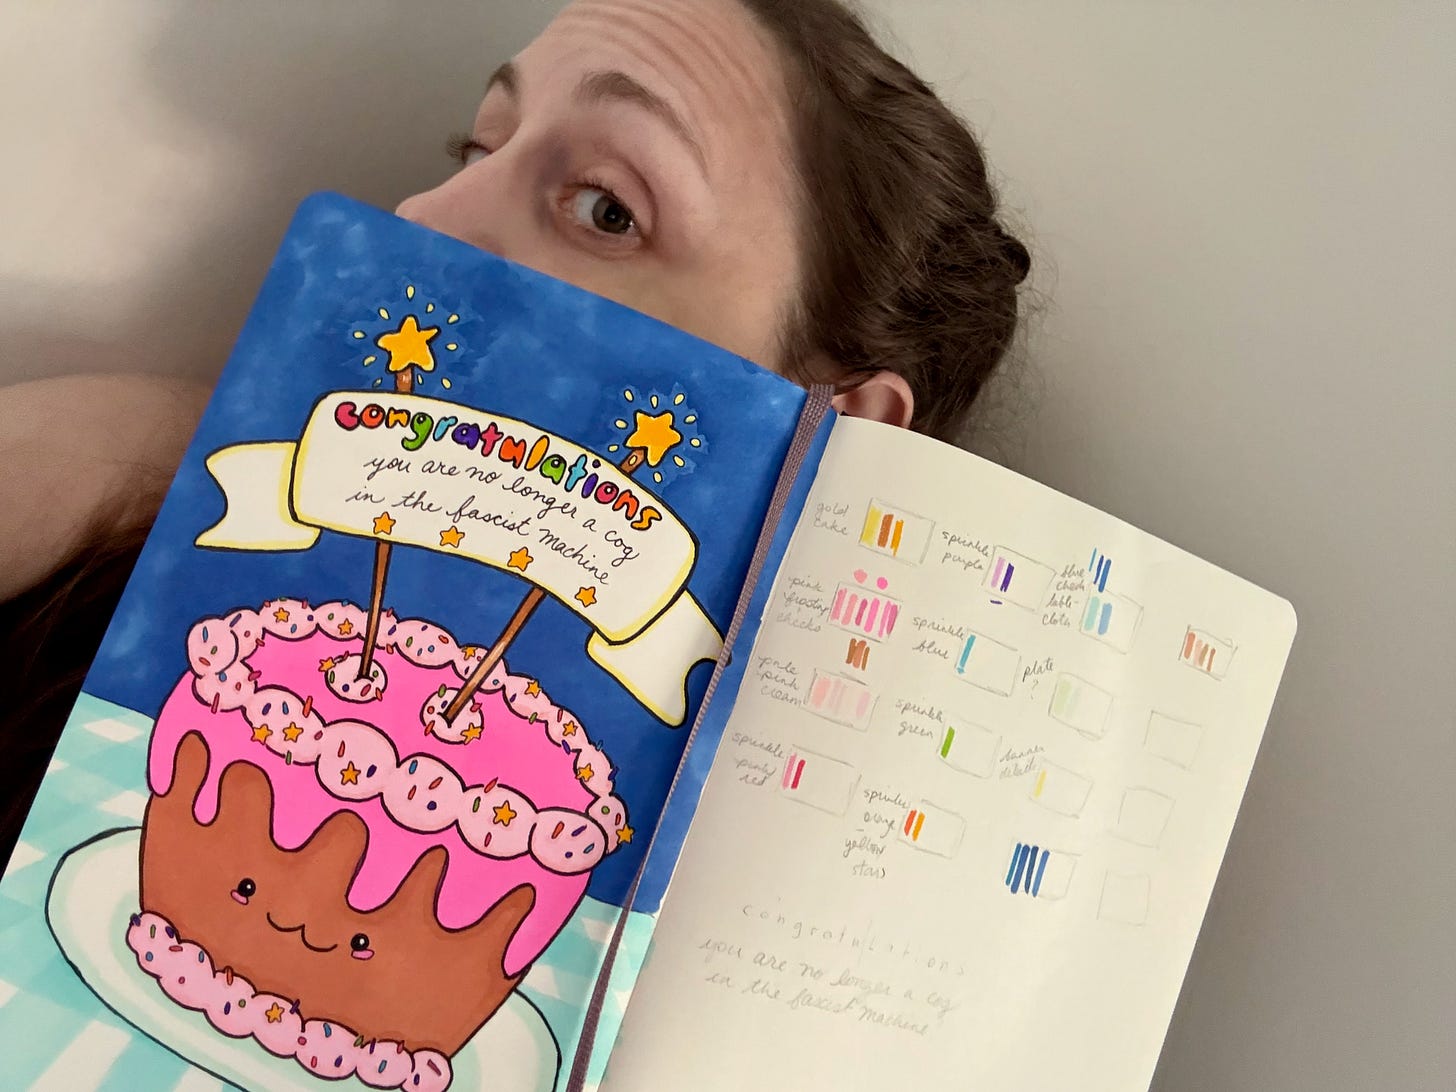 congratulations
you are no longer a cog
in the fascist machine
gold
cake
sprinkle
purple
blue
check
table-
cloth
pink
frosting
cheeks
sprinkle
blue
plate
?
pale
pink
cream
sprinkle
green
banner
details
sprinkle
pink/
red
sprinkle
orange
yellow
stars
congratulations
you are no longer a cog
in the fascist machine